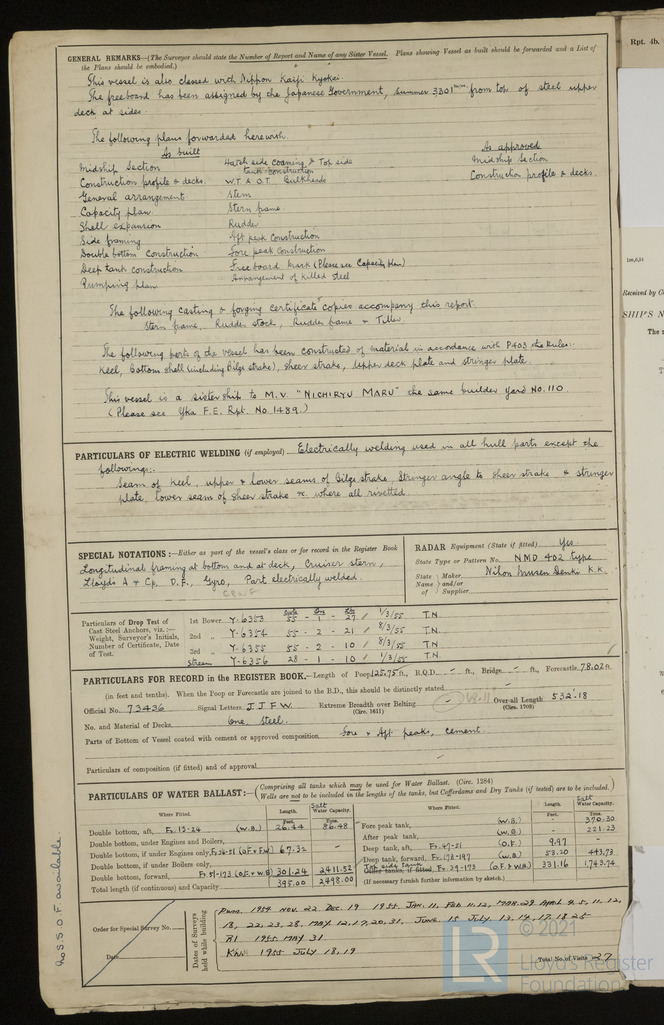 GENERAL REMARKS—(The Surveyor should state the Number of Report and Name of any Sister Vessel. Plans showing Vessel as built should be forwarded and a List of
the Plans should be embodied.)
This vessel is also classed with Nippon Kaiji Kyokai.
The freeboard has been assigned by the Japanese Government, summer 3301 from top of steel upper
deck at sides.
The following plans forwarded herewith.
As built As approved
Midship Section Hatch side coaming & Top side tank construction Midship Section
Construction profile & decks. W.T. & O.T. Bulkheads Construction profile & decks.
General arrangement Stem
Capacity plan Stern frame
Shell expansion Rudder
Side framing Aft peak construction
Double bottom construction Fore peak construction
Deep tank construction Freeboard mark (Please see Capacity plan)
Pumping plan Arrangement of killed steel
The following casting & forging certificate copies accompany this report.
Stern frame, Rudder stock, Rudder frame & Tiller.
The following parts of the vessel has been constructed of material in accordance with P403 the Rules.
Keel, bottom shell (including Bilge strake), sheer strake, upper deck plate and stringer plate.
This vessel is a sistership to M.V. "NICHIRYU MARU" the same builder yard No. 110
(Please see Yka F.E. Rpt. No. 1489.)
PARTICULARS OF ELECTRIC WELDING (if employed) Electrically welding used in all hull parts except the
followings:.
Seam of keel, upper & lower seams of bilge strake, Stringer angle to sheer strake & stringer
plate, lower seam of sheer strake &c. where all rivetted.
SPECIAL NOTATIONS:—Either as part of the vessel's class or for record in the Register Book
Longitudinal framing at bottom and at deck, Cruiser stern,
Lloyds A & Cp, D.F., Gyro, Part electrically welded.
RADAR Equipment (State if fitted) Yes
State Type or Pattern No. NMD 402 type
State Name of Maker and/or Supplier Nihon Musen Denki K.K.
Particulars of Drop Test of
Cast Steel Anchors, viz.:—
Weight, Surveyor's Initials,
Number of Certificate, Date
of Test.
1st Bower Y-6353 55 - 1 - 27 1/3/55 T.N.
2nd " Y-6354 55 - 2 - 21 8/3/55 T.N.
3rd " Y-6355 55 - 2 - 10 8/3/55 T.N.
stream Y-6356 28 - 1 - 10 1/3/55 T.N.
PARTICULARS FOR RECORD in the REGISTER BOOK.—Length of Poop 125.75 ft., R.Q.D. - ft., Bridge - ft., Forecastle 78.02 ft.
(in feet and tenths). When the Poop or Forecastle are joined to the B.D., this should be distinctly stated
Official No. 73436 Signal Letters J J F W Extreme Breadth over Belting (Circ. 1611) Over-all Length (Circ. 1703) 532.18
No. and Material of Decks One, Steel.
Parts of Bottom of Vessel coated with cement or approved composition Fore & Aft peaks, cement.
Particulars of composition (if fitted) and of approval
PARTICULARS OF WATER BALLAST:—(Comprising all tanks which may be used for Water Ballast. (Circ. 1284)
Wells are not to be included in the lengths of the tanks, but Cofferdams and Dry Tanks (if tested) are to be included.)
Where Fitted. Length. Salt Water Capacity. Where Fitted. Length. Salt Water Capacity.
Feet. Tons. Feet. Tons.
Double bottom, aft, Fr. 13-24 (W.B.) 26.44 86.48
Double bottom, under Engines and Boilers,
Double bottom, if under Engines only, 67.32 -
Double bottom, if under Boilers only,
Double bottom, forward, 301.24 2411.52
Total length (if continuous) and Capacity 395.00 2498.00
Fore peak tank, (W.B.) - 370.30
After peak tank, (W.B.) - 221.23
Deep tank, aft, Fr. 49-51 (O.F.) 9.97 -
Deep tank, forward, Fr. 178-197 (W.B.) 53.20 443.73
Top side tank Other tanks, if fitted, Fr. 29-173 (O.F & W.B.) 331.16 1,743.74
(If necessary furnish further information by sketch.)
Order for Special Survey No.
Date
Dates of Surveys held while building
1954 Nov. 22 Dec. 19 1955 Jan. 11, Feb. 11, 12, Mar. 29 April 4, 5, 11, 12,
18, 22, 23, 28, May 12, 17, 20, 31, June 15 July 13, 14, 17, 18 25
1955 May 31
1955 July 18, 19
Total No. of Visits 27
No S.S.O.F available.
© 2021
LR
Lloyd's Register
Foundation
Rpt. 4b.
Received by
SHIP'S N